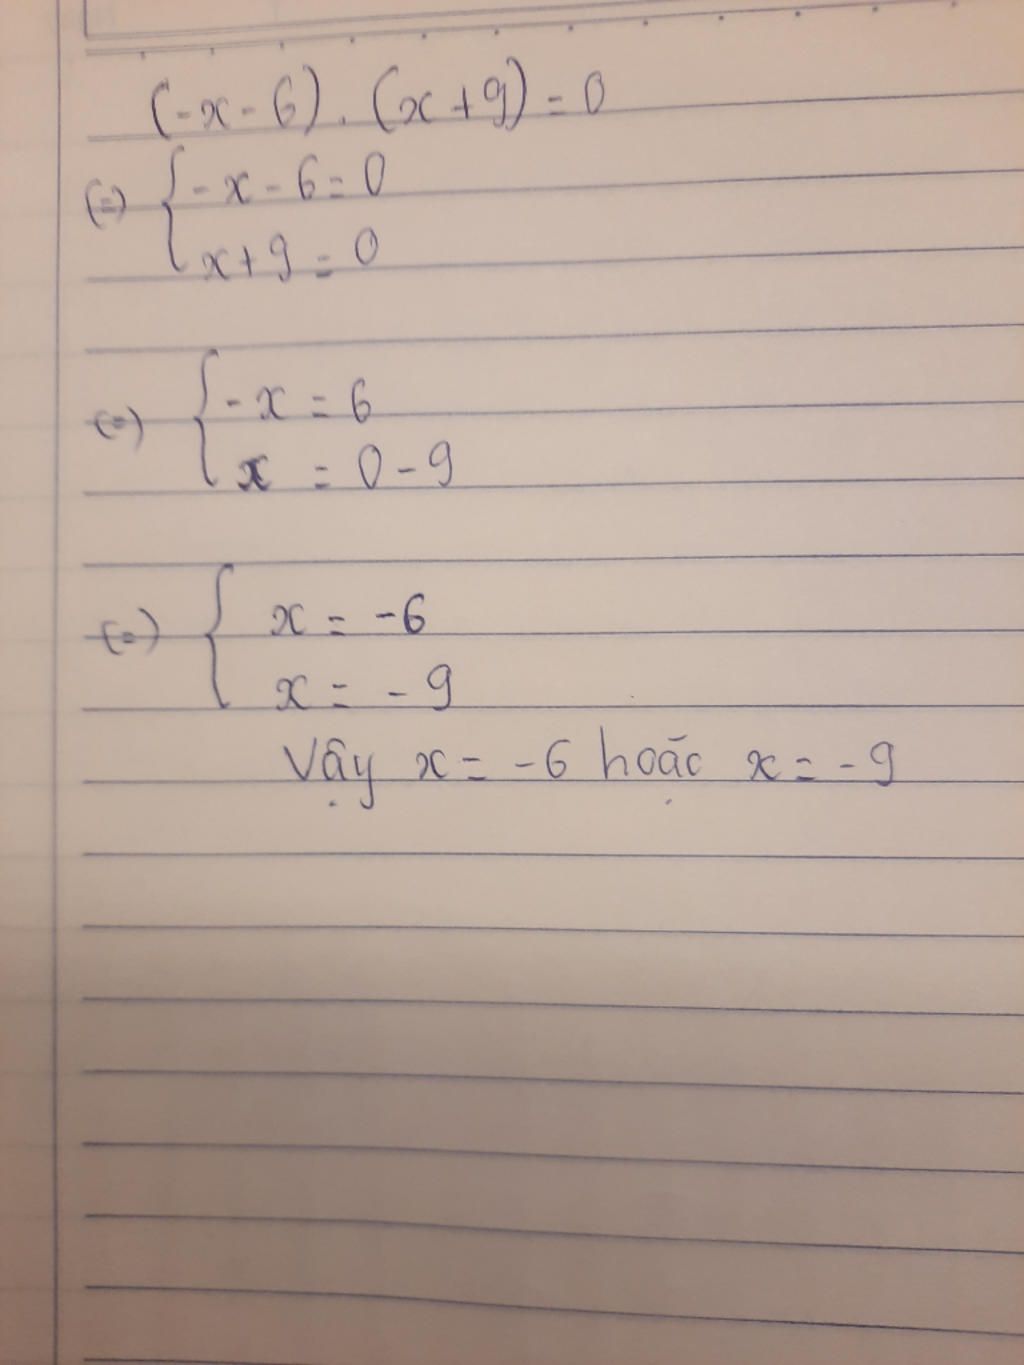 (-x-6).(x+9)=0
(=) { -x-6=0
x+9=0
(=) { -x = 6
x = 0-9
(=) { x = -6
x = -9
Vậy x = -6 hoặc x = -9